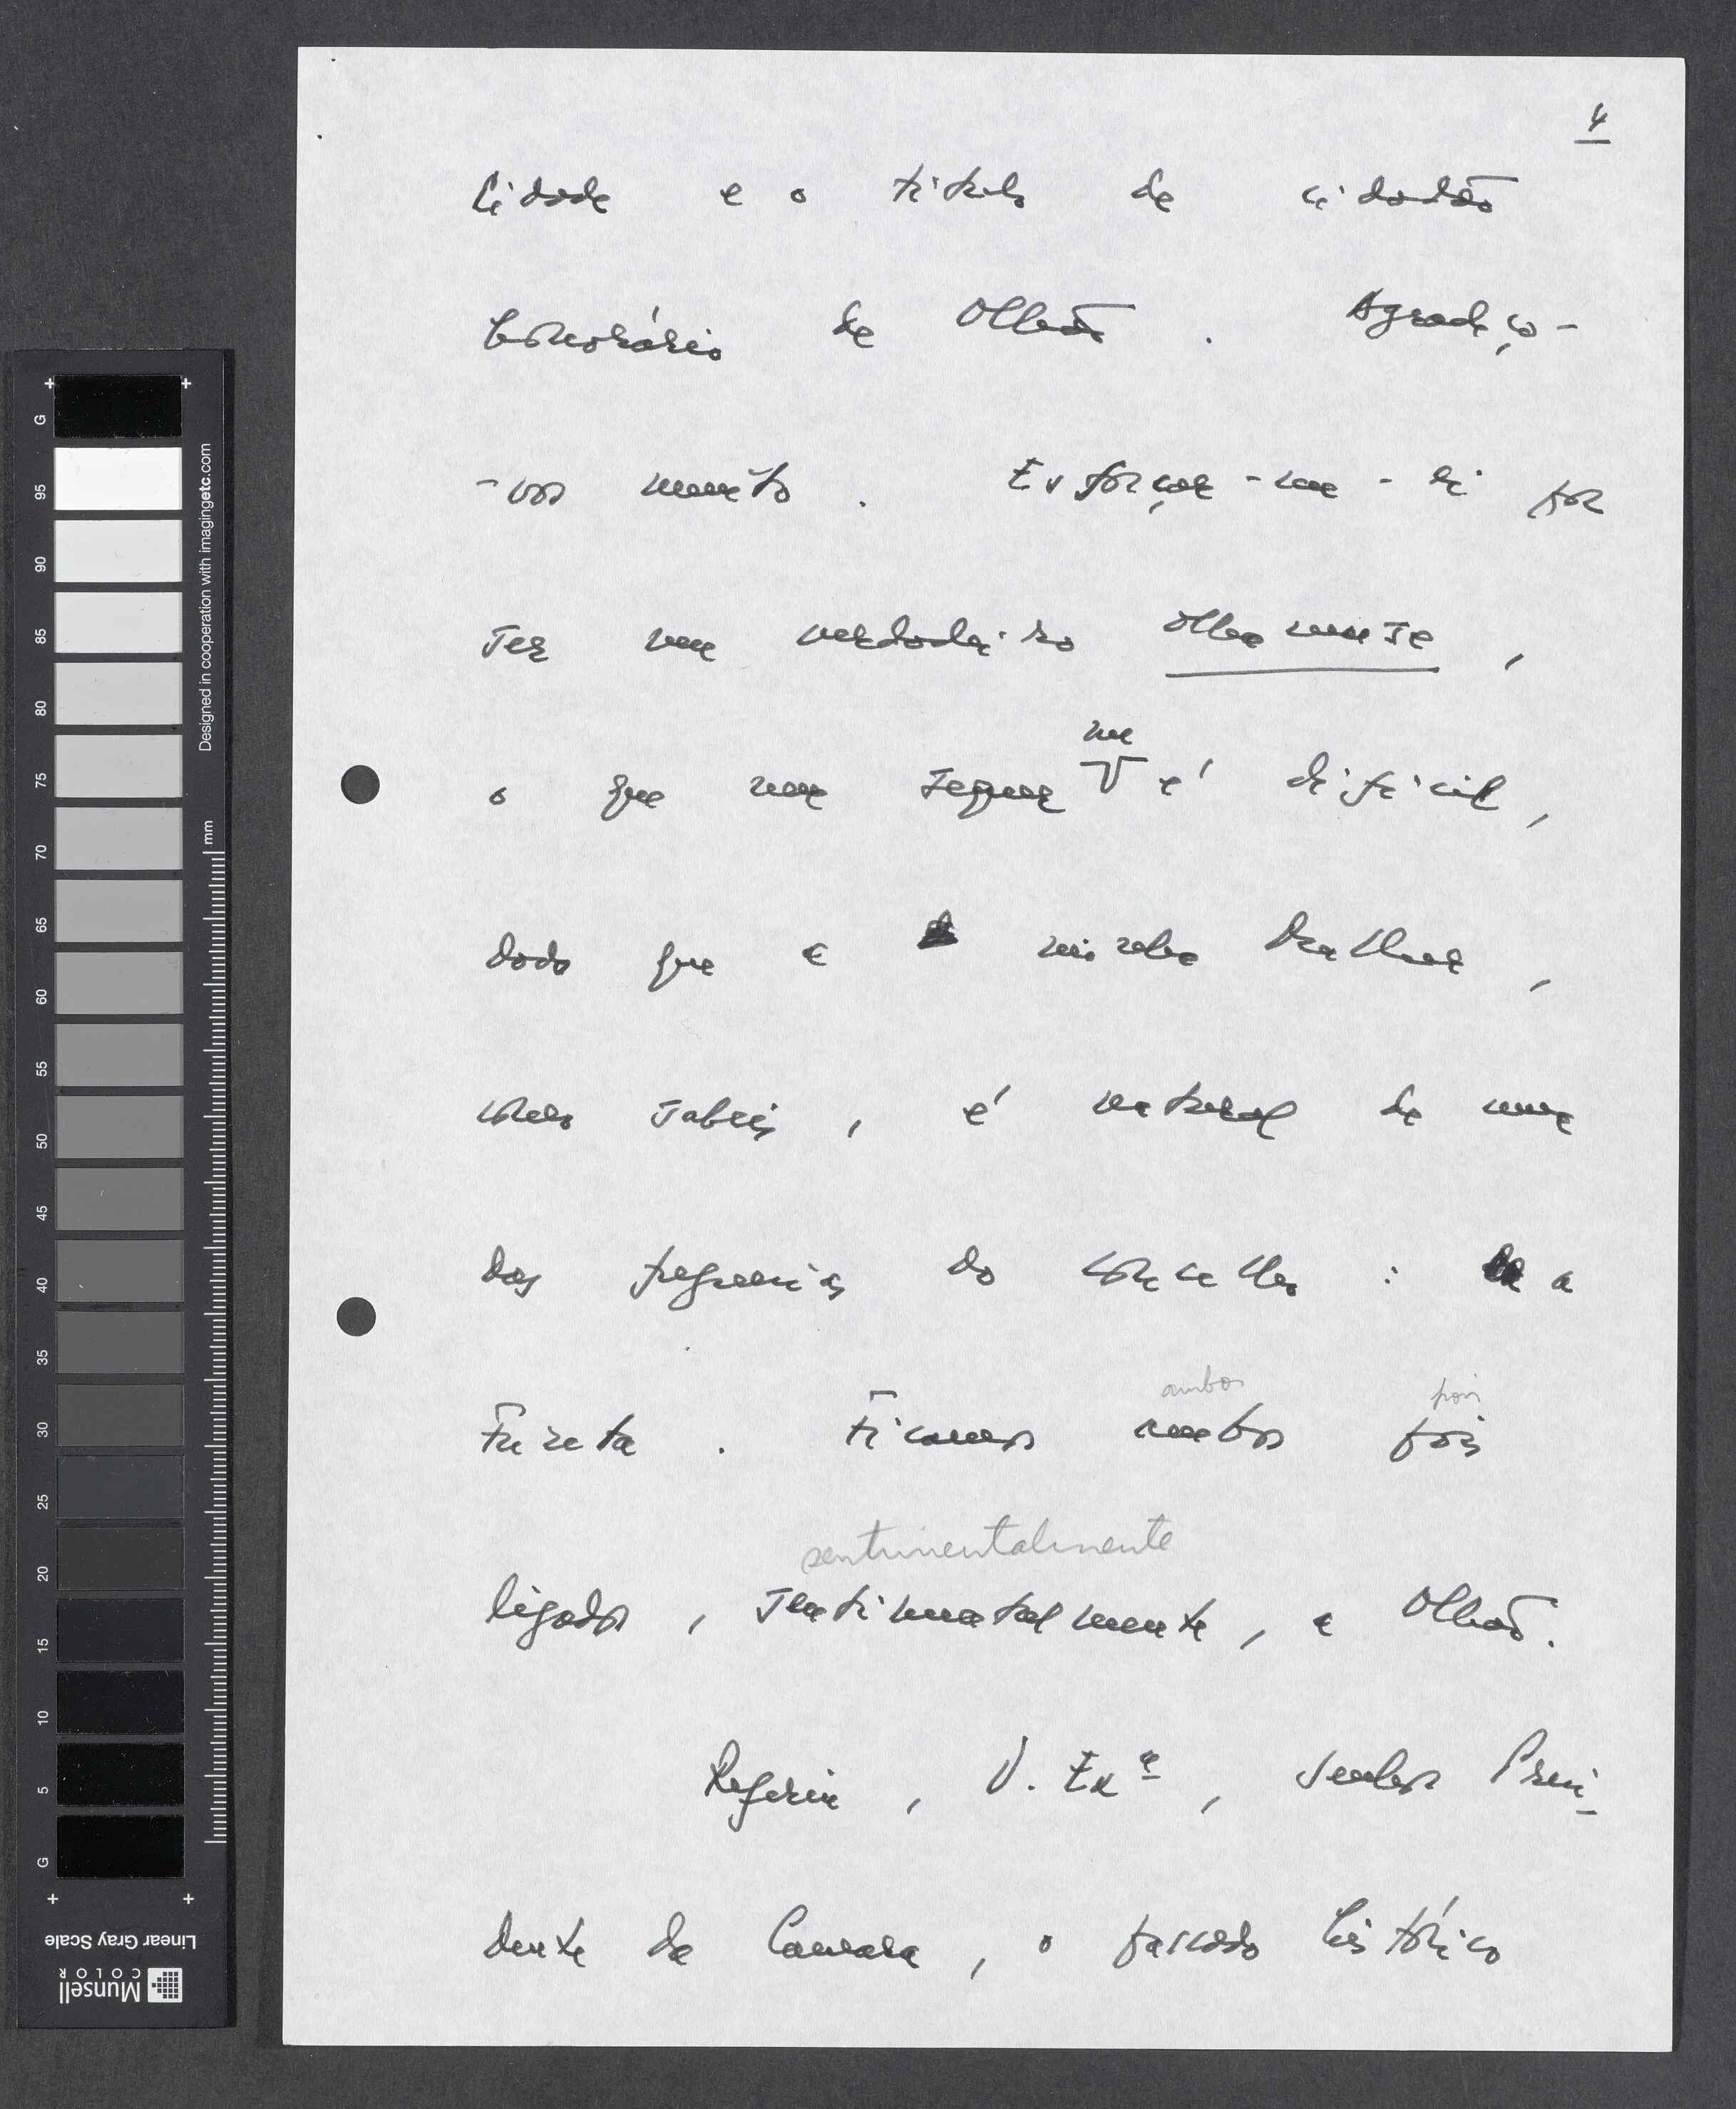 4
Cidade e o título de cidadão
honorário de Olhão. Agradeço-
-vos muito. Esforçar-me-ei por
ser um verdadeiro olhanense,
o que nem sequer me é difícil,
dado que a minha mulher,
como sabeis, é natural de uma
das freguesias do concelho: a
Fuzeta. Ficamos ambos pois
ambos pois
ligados, sentimentalmente, a Olhão.
sentimentalmente
Referiu, V. Exª, senhor Presi-
dente da Camara, o passado histórico
G
95
90
85
80
75
70
65
60
55
50
45
40
35
30
25
20
15
10
5
G
mm
Designed in cooperation with imagingetc.com
Linear Gray Scale
Munsell
COLOR